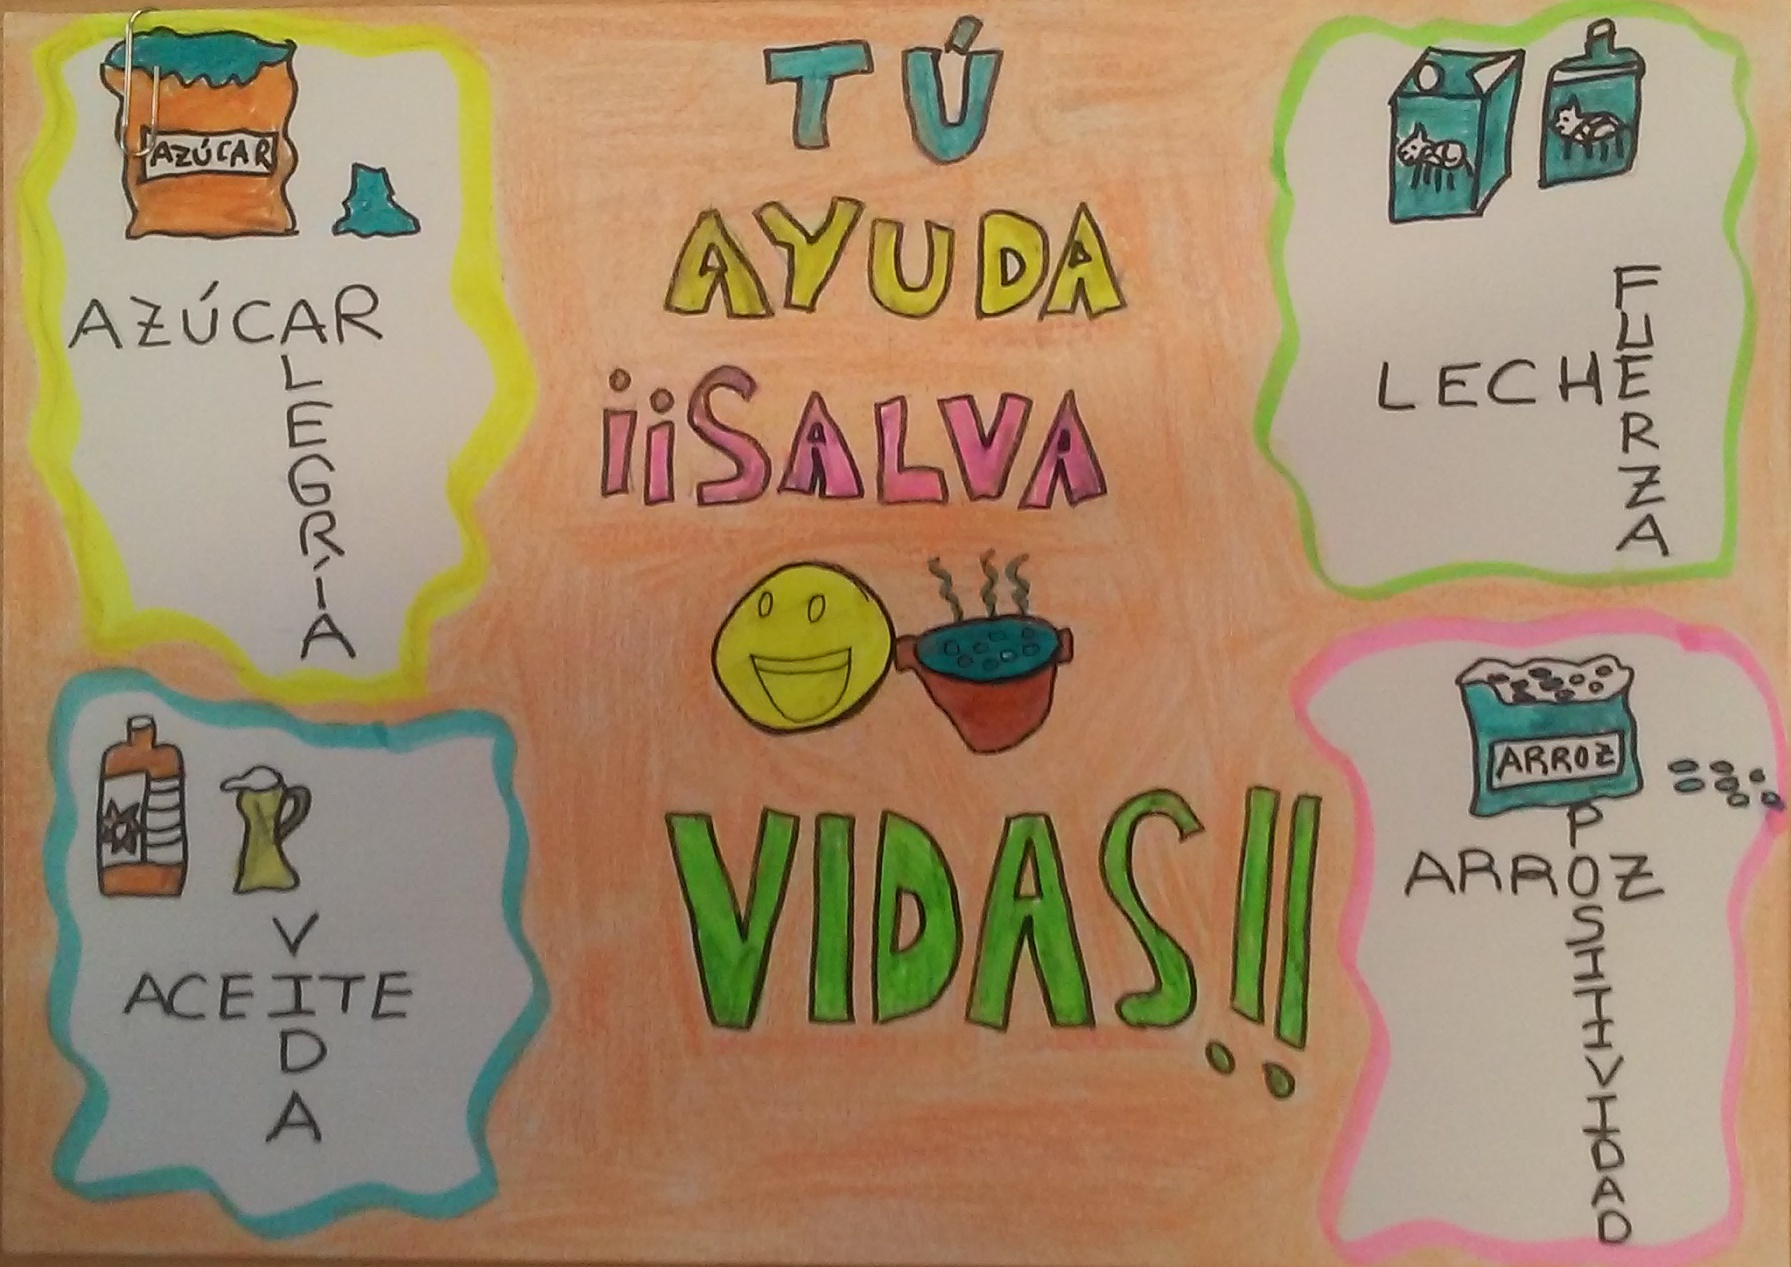 TÚ
AYUDA
¡¡SALVA
VIDAS!!
AZÚCAR
AZÚCAR
ALEGRÍA
FUERZA
LECHE
VIDA
ACEITE
ARROZ
POSITIVIDAD
ARROZ